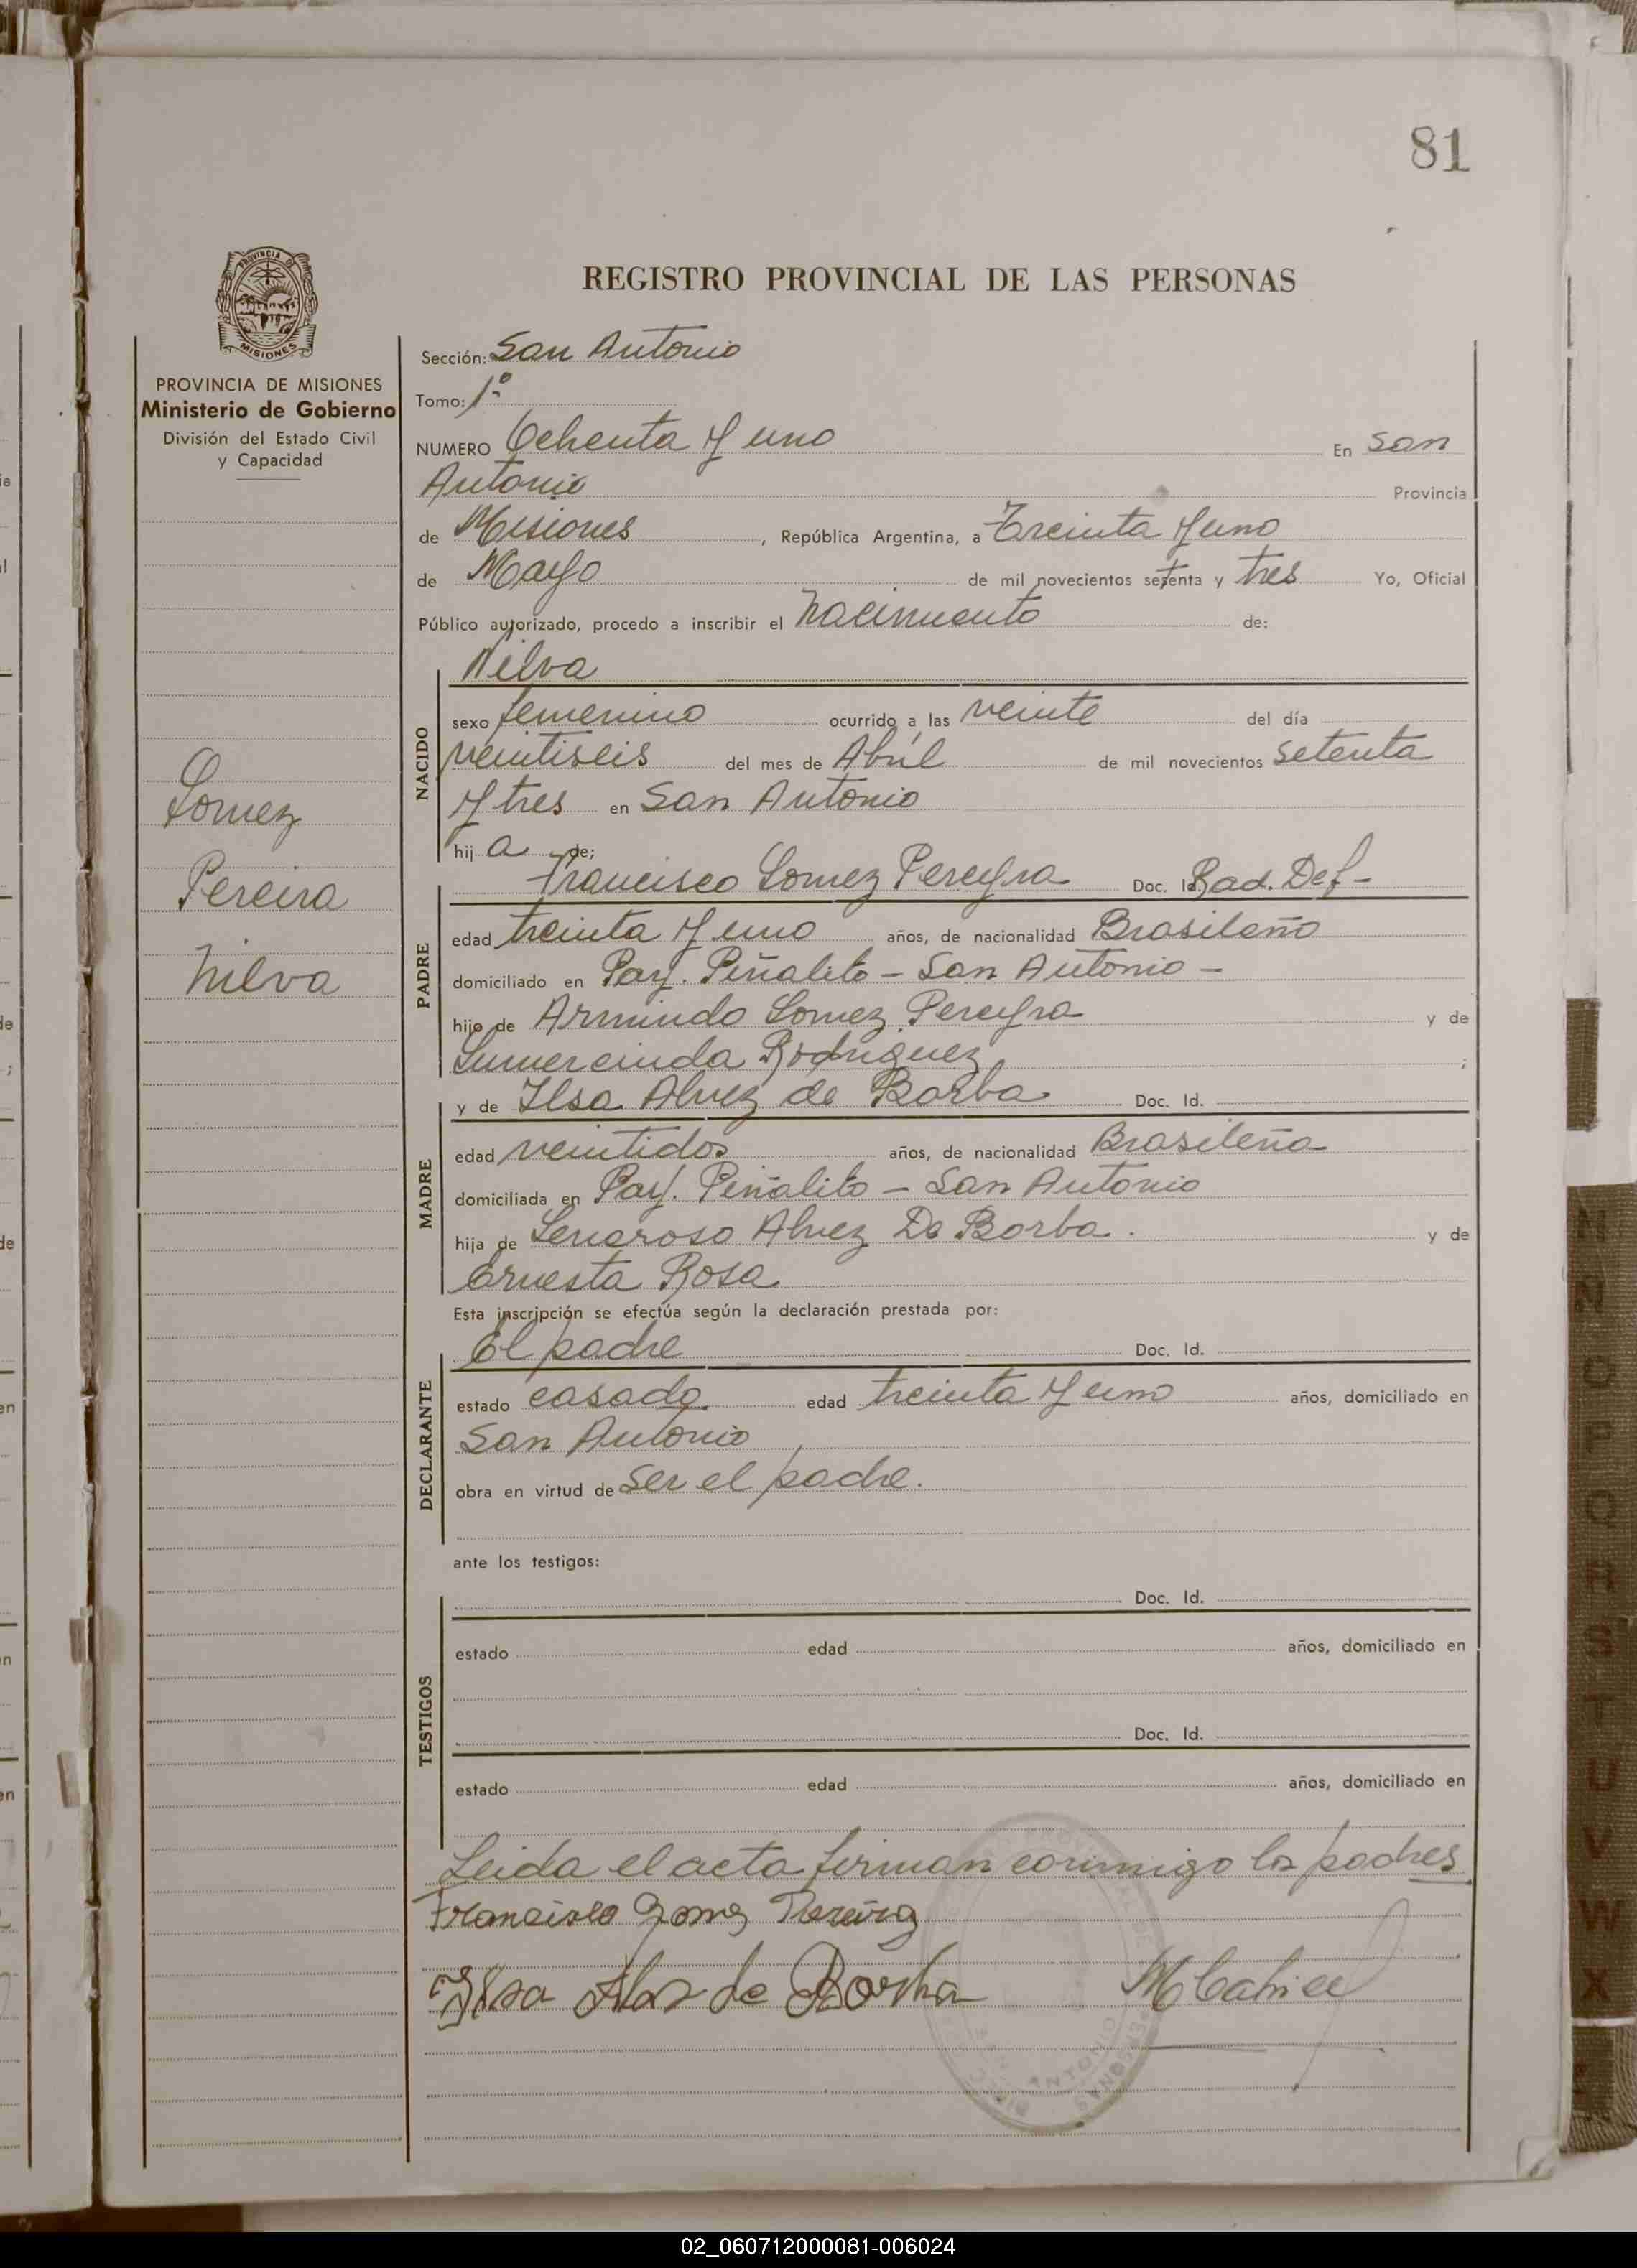 81
REGISTRO PROVINCIAL DE LAS PERSONAS
PROVINCIA DE MISIONES
Ministerio de Gobierno
División del Estado Civil
y Capacidad
Gomez
Pereira
Nilva
Sección: San Antonio
Tomo: 1º
NUMERO Ochenta y uno En San
Antonio Provincia
de Misiones, República Argentina, a Treinta y uno
de Mayo de mil novecientos setenta y tres Yo, Oficial
Público autorizado, procedo a inscribir el Nacimiento de:
Nilva
NACIDO
sexo femenino ocurrido a las veinte del día
veintiseis del mes de Abril de mil novecientos setenta
y tres en San Antonio
hij a de;
Francisco Gomez Pereyra Doc. Id. Rad. Def-
PADRE
edad treinta y uno años, de nacionalidad Brasileño
domiciliado en Paj. Piñalito - San Antonio -
hijo de Armindo Gomez Pereyra y de
Gumercinda Rodriguez ;
y de Ilsa Alvez de Borba Doc. Id.
MADRE
edad veintidos años, de nacionalidad Brasileña
domiciliada en Paj. Piñalito - San Antonio
hija de Generoso Alvez De Borba. y de
Ernesta Rosa
Esta inscripción se efectúa según la declaración prestada por:
El padre Doc. Id.
DECLARANTE
estado casado edad treinta y uno años, domiciliado en
San Antonio
obra en virtud de ser el padre.
ante los testigos:
Doc. Id.
TESTIGOS
estado edad años, domiciliado en
Doc. Id.
estado edad años, domiciliado en
Leida el acta firman conmigo los padres
Francisco Gomes Pereira
Ilsa de Borba
02_060712000081-006024